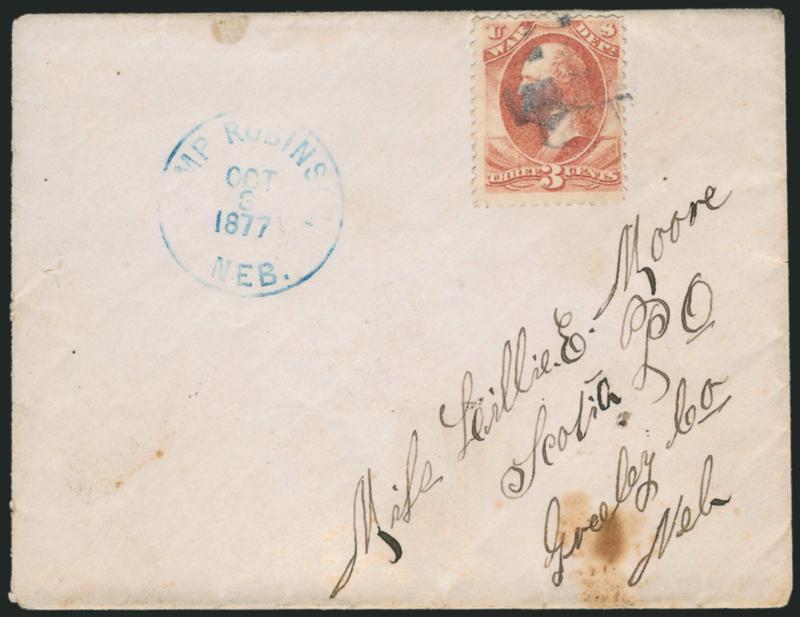 U S
WAR DEPT.
THREE 3 CENTS
MP ROBINS
OCT
8
1877
NEB.
Miss Lillie. E. Moore
Scotia P O
Greeley Co
Neb